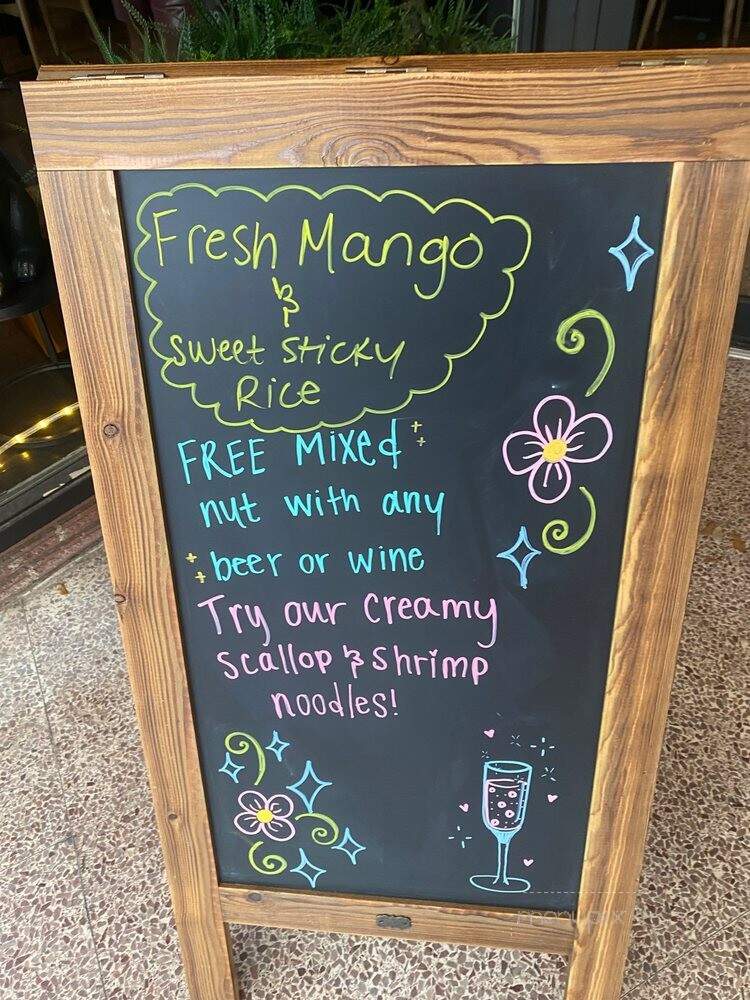 Fresh Mango
&
Sweet Sticky
Rice
FREE Mixed
nut with any
beer or wine
Try our Creamy
Scallop & Shrimp
noodles!